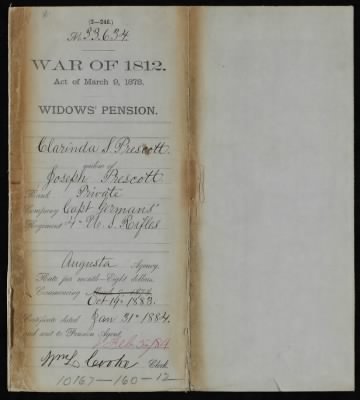 (3—246.)
No. 33.634
WAR OF 1812.
Act of March 9, 1878.
WIDOWS' PENSION.
Clarinda S. Prescott
widow of
Joseph Prescott
Rank Private
Company Capt Yermans'
Regiment 4" U.S. Rifles
Augusta Agency.
Rate per month—Eight dollars.
Commencing
Oct 19th 1883.
Certificate dated Jan 31st 1884.
and sent to Pension Agent,
Feb
Wm L. Cooke Clerk.
10167—160—12